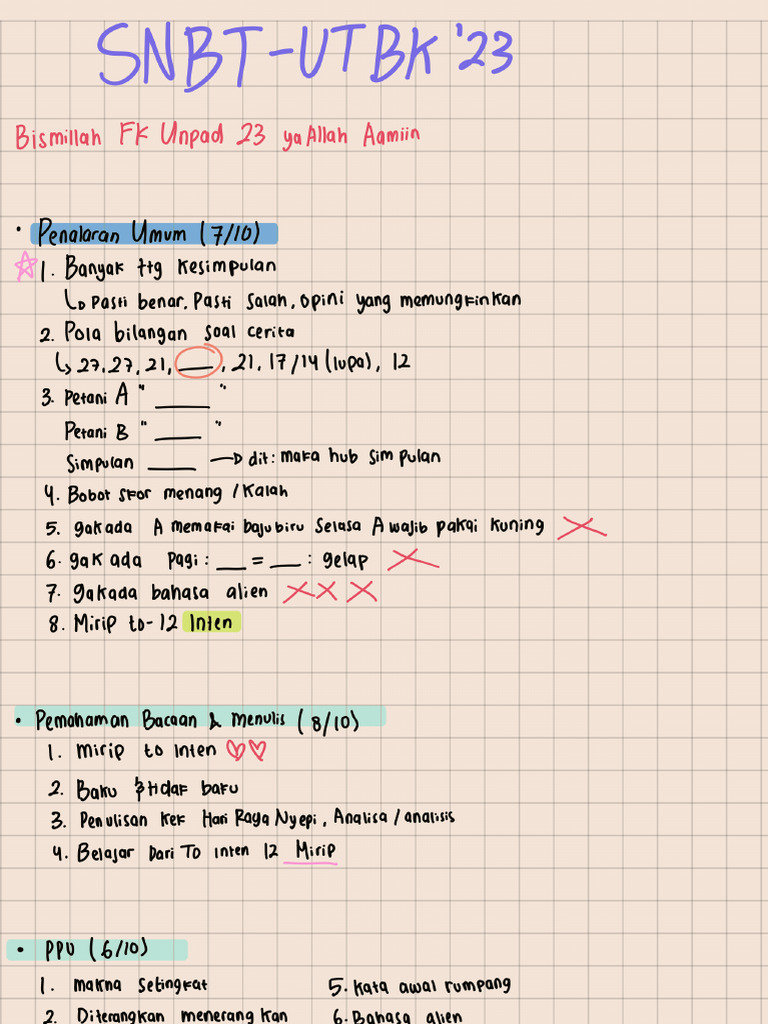 SNBT-UTBK '23
Bismillah FK Unpad 23 ya Allah Aamiin
• Penalaran Umum (7/10)
☆ 1. Banyak ttg kesimpulan
↳ Pasti benar, Pasti salah, opini yang memungkinkan
2. Pola bilangan soal cerita
↳ 27, 27, 21, ___, 21, 17/14 (lupa), 12
3. Petani A " ____ "
Petani B " ____ "
Simpulan ____ → dit: maka hub simpulan
4. Bobot skor menang / kalah
5. gak ada A memakai baju biru Selasa A wajib pakai kuning X
6. gak ada pagi : __ = __ : gelap X
7. gak ada bahasa alien X X X
8. Mirip to-12 Inten
• Pemahaman Bacaan & Menulis (8/10)
1. Mirip to Inten ♡♡
2. Baku & tidak baku
3. Penulisan kek Hari Raya Nyepi, Analisa / analisis
4. Belajar Dari TO Inten 12 Mirip
• PPU (6/10)
1. makna setingkat
5. Kata awal rumpang
2. Diterangkan menerangkan
6. Bahasa alien